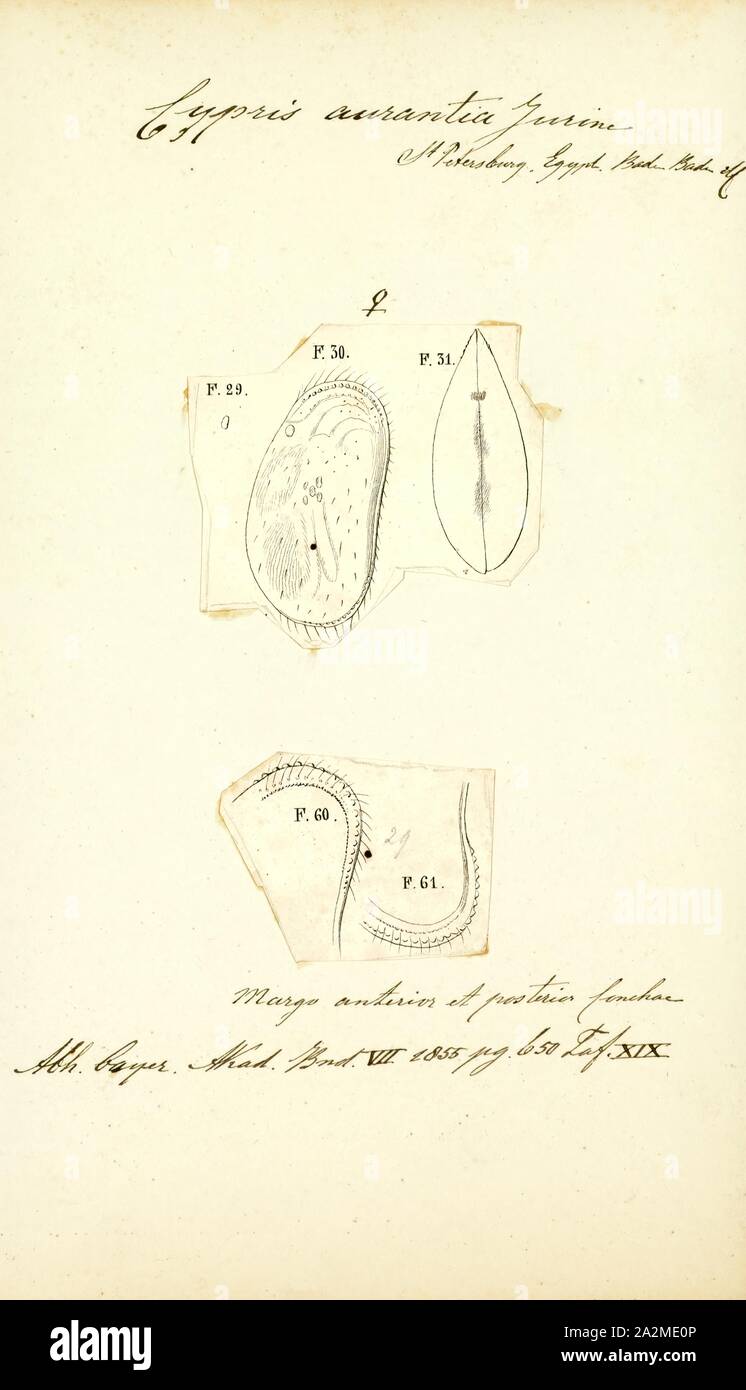 Cypris aurantia Jurine
St Petersburg. Egypt. Baden Baden
♀
F. 30.
F. 31.
F. 29.
F. 60.
29
F. 61.
Margo anterior et posterior Conchae
Abh. bayer. Akad. Bnd. VII 1855 pg. 650 Taf. XIX
alamy
alamy
alamy
Image ID: 2A2ME0P
www.alamy.com